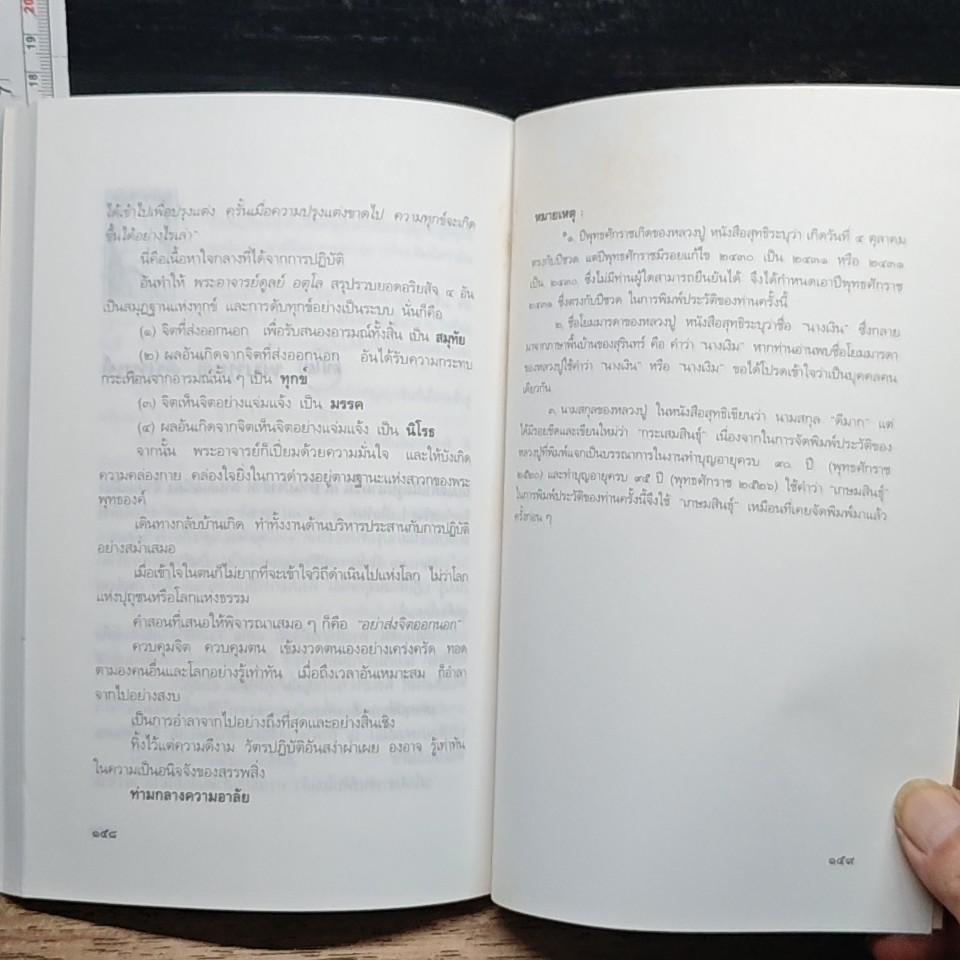 20
19
18
7
ได้เข้าไปเพื่อปรุงแต่ง ครั้นเมื่อความปรุงแต่งขาดไป ความทุกข์จะเกิด
ขึ้นได้อย่างไรเล่า"
นี่คือเนื้อหาใจกลางที่ได้จากการปฏิบัติ
อันทำให้ พระอาจารย์ดูลย์ อตุโล สรุปรวบยอดอริยสัจ ๔ อัน
เป็นสมุฏฐานแห่งทุกข์ และการดับทุกข์อย่างเป็นระบบ นั่นก็คือ
(๑) จิตที่ส่งออกนอก เพื่อรับสนองอารมณ์ทั้งสิ้น เป็น สมุทัย
(๒) ผลอันเกิดจากจิตที่ส่งออกนอก อันได้รับความกระทบ
กระเทือนจากอารมณ์นั้น ๆ เป็น ทุกข์
(๓) จิตเห็นจิตอย่างแจ่มแจ้ง เป็น มรรค
(๔) ผลอันเกิดจากจิตเห็นจิตอย่างแจ่มแจ้ง เป็น นิโรธ
จากนั้น พระอาจารย์ก็เปี่ยมด้วยความมั่นใจ และให้บังเกิด
ความคล่องกาย คล่องใจยิ่งในการดำรงอยู่ตามฐานะแห่งสาวกของพระ
พุทธองค์
เดินทางกลับบ้านเกิด ทำทั้งงานด้านบริหารประสานกับการปฏิบัติ
อย่างสม่ำเสมอ
เมื่อเข้าใจในตนก็ไม่ยากที่จะเข้าใจวิถีดำเนินไปแห่งโลก ไม่ว่าโลก
แห่งปุถุชนหรือโลกแห่งธรรม
คำสอนที่เสนอให้พิจารณาเสมอ ๆ ก็คือ "อย่าส่งจิตออกนอก"
ควบคุมจิต ควบคุมตน เข้มงวดตนเองอย่างเคร่งครัด ทอด
ตามองคนอื่นและโลกอย่างรู้เท่าทัน เมื่อถึงเวลาอันเหมาะสม ก็อำลา
จากไปอย่างสงบ
เป็นการอำลาจากไปอย่างถึงที่สุดและอย่างสิ้นเชิง
ทิ้งไว้แต่ความดีงาม วัตรปฏิบัติอันสง่าผ่าเผย องอาจ รู้เท่าทัน
ในความเป็นอนิจจังของสรรพสิ่ง
ท่ามกลางความอาลัย
๑๕๘
หมายเหตุ :
*๑. ปีพุทธศักราชเกิดของหลวงปู่ หนังสือสุทธิระบุว่า เกิดวันที่ ๔ ตุลาคม
ตรงกับปีชวด แต่ปีพุทธศักราชมีรอยแก้ไข ๒๔๓๐ เป็น ๒๔๓๑ หรือ ๒๔๓๑
เป็น ๒๔๓๐ ซึ่งไม่มีท่านผู้ใดสามารถยืนยันได้ จึงได้กำหนดเอาปีพุทธศักราช
๒๔๓๑ ซึ่งตรงกับปีชวด ในการพิมพ์ประวัติของท่านครั้งนี้
๒. ชื่อโยมมารดาของหลวงปู่ หนังสือสุทธิระบุว่าชื่อ "นางเงิน" ซึ่งกลาย
มาจากภาษาพื้นบ้านของสุรินทร์ คือ คำว่า "นางเงิม" หากท่านอ่านพบชื่อโยมมารดา
ของหลวงปู่ใช้คำว่า "นางเงิน" หรือ "นางเงิม" ขอได้โปรดเข้าใจว่าเป็นบุคคลคน
เดียวกัน
๓. นามสกุลของหลวงปู่ ในหนังสือสุทธิเขียนว่า นามสกุล "ดีมาก" แต่
ได้มีรอยขีดและเขียนใหม่ว่า "กระเสมสินธุ์" เนื่องจากในการจัดพิมพ์ประวัติของ
หลวงปู่ที่พิมพ์แจกเป็นบรรณาการในงานทำบุญอายุครบ ๙๐ ปี (พุทธศักราช
๒๕๒๐) และทำบุญอายุครบ ๙๕ ปี (พุทธศักราช ๒๕๒๖) ใช้คำว่า "เกษมสินธุ์"
ในการพิมพ์ประวัติของท่านครั้งนี้จึงใช้ "เกษมสินธุ์" เหมือนที่เคยจัดพิมพ์มาแล้ว
ครั้งก่อน ๆ
๑๕๙